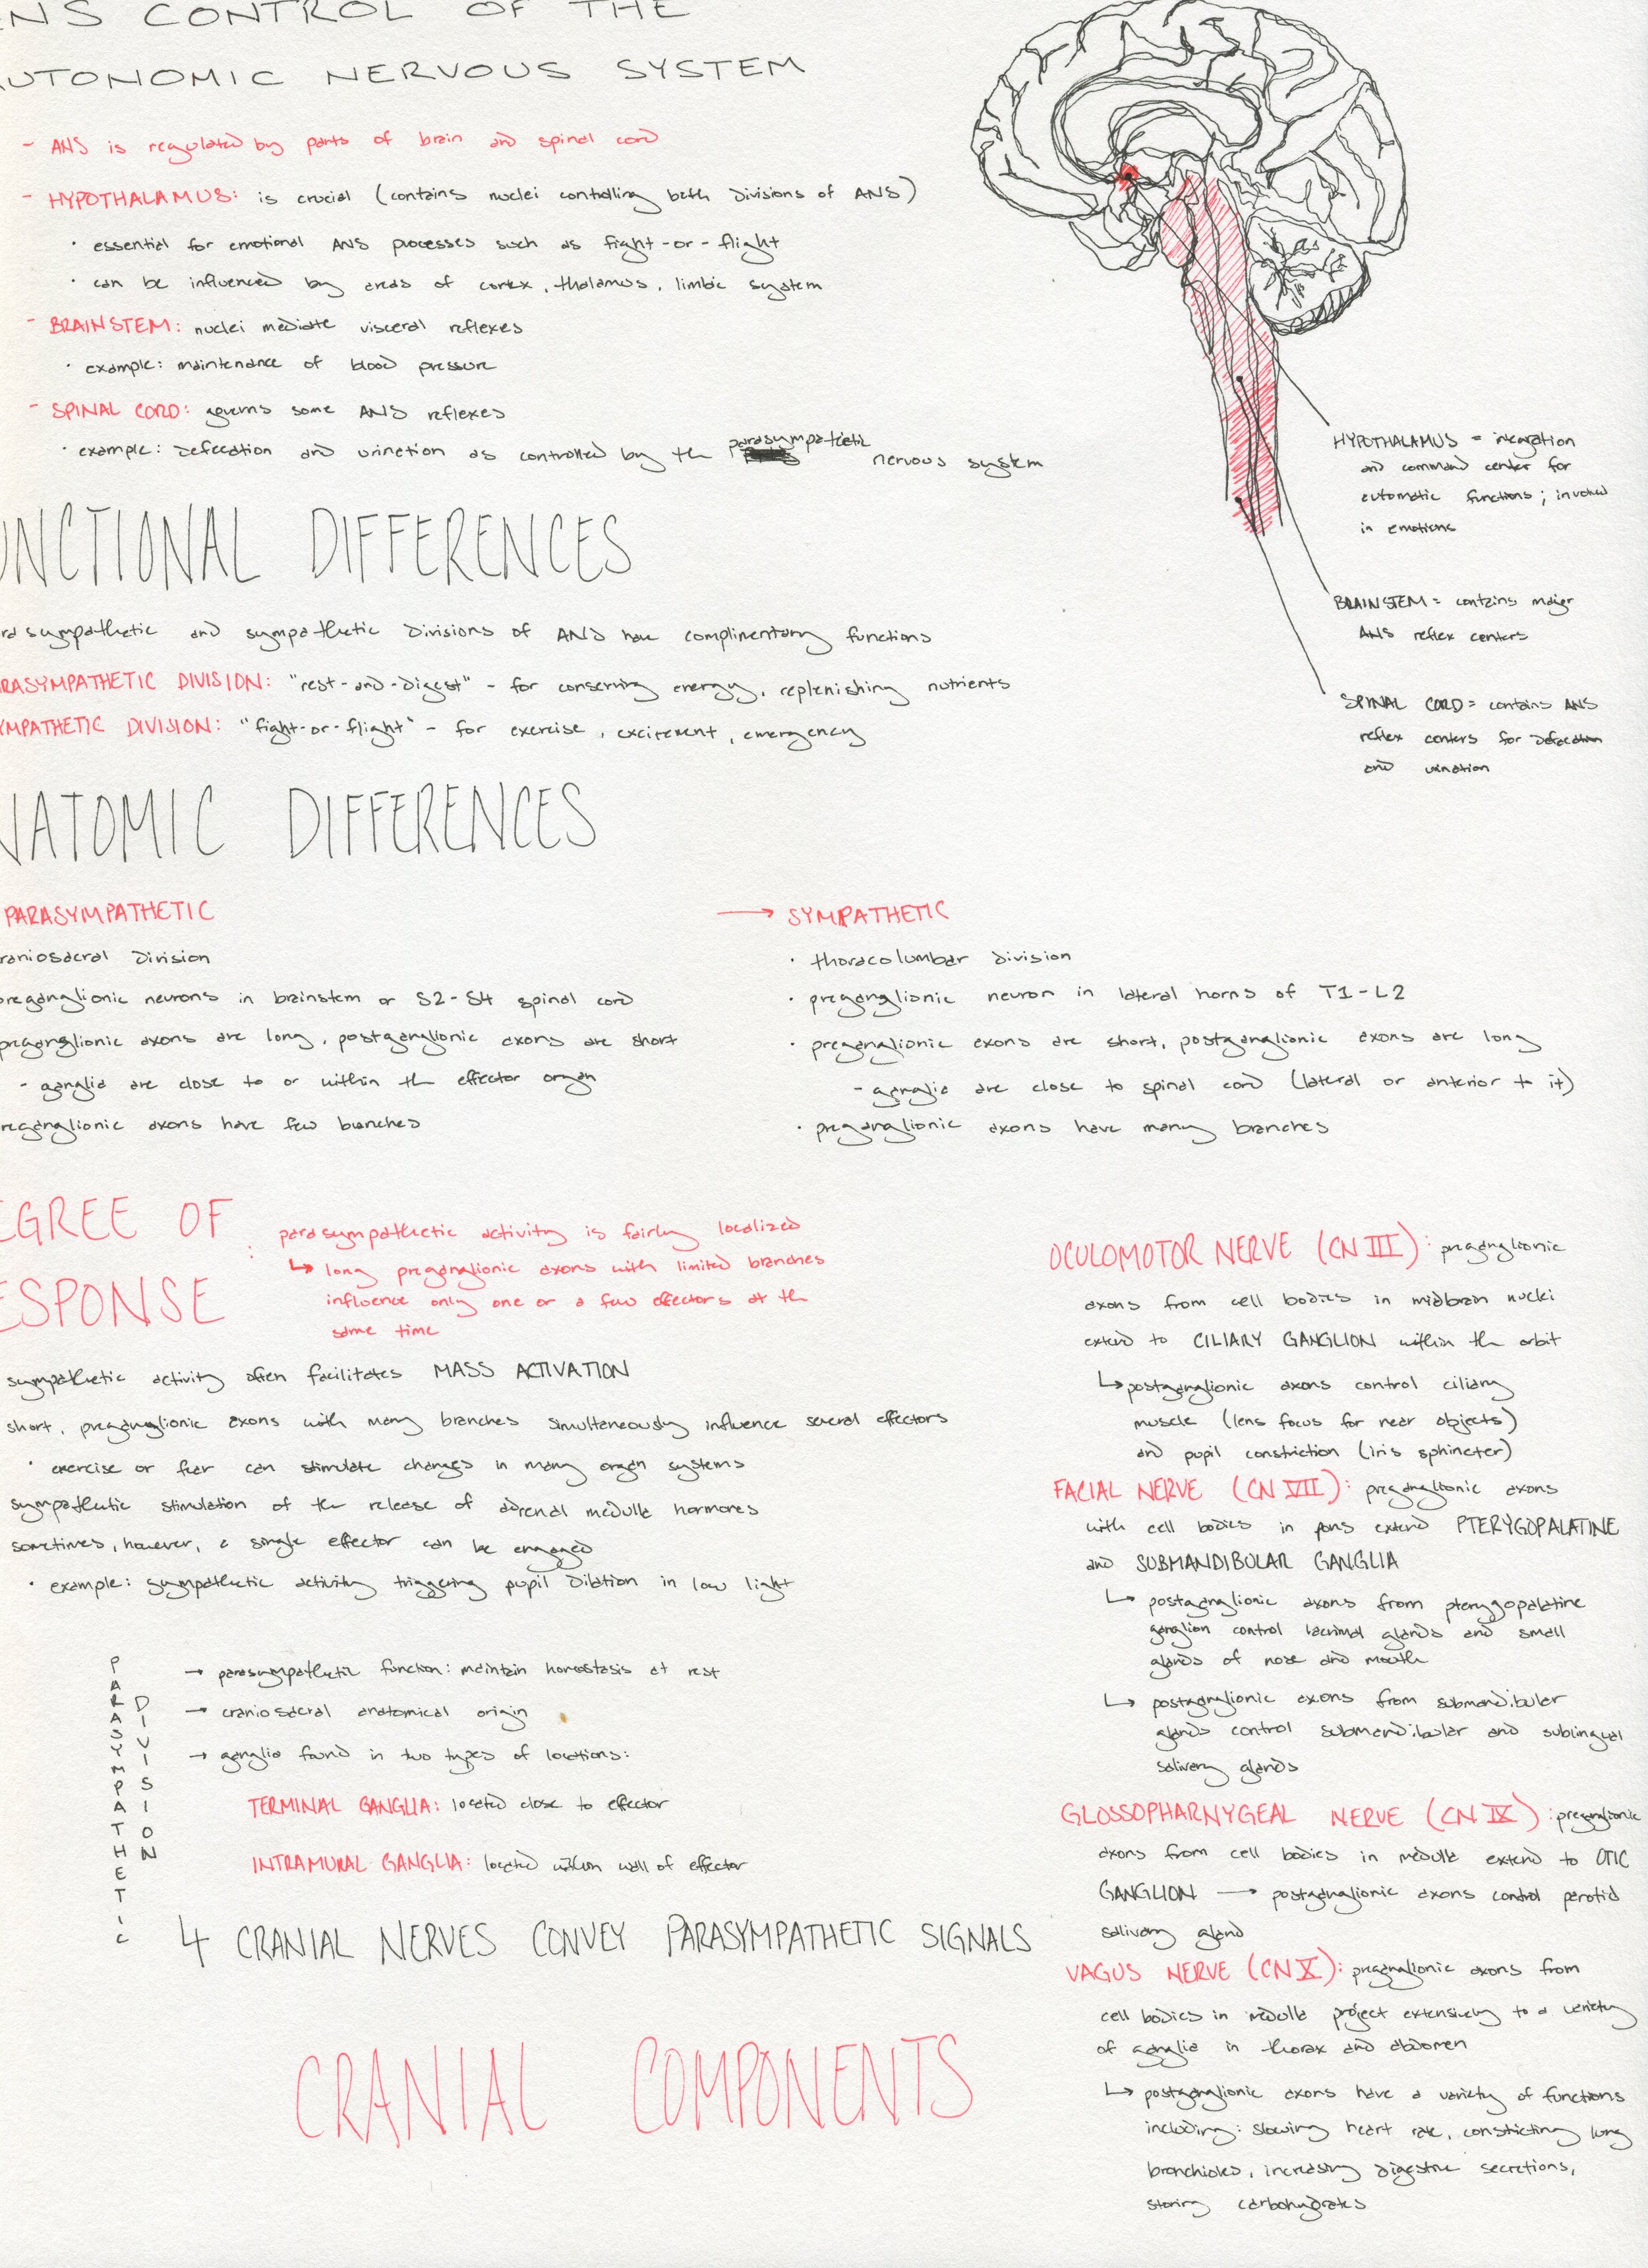 NS CONTROL OF THE
UTONOMIC NERVOUS SYSTEM
- ANS is regulated by parts of brain and spinal cord
- HYPOTHALAMUS: is crucial (contains nuclei controlling both divisions of ANS)
· essential for emotional ANS processes such as fight-or-flight
· can be influenced by areas of cortex, thalamus, limbic system
- BRAINSTEM: nuclei mediate visceral reflexes
· example: maintenance of blood pressure
- SPINAL CORD: governs some ANS reflexes
· example: defecation and urination as controlled by the parasympathetic nervous system
HYPOTHALAMUS = integration
and command center for
automatic functions; involved
in emotions
BRAINSTEM = contains major
ANS reflex centers
SPINAL CORD = contains ANS
reflex centers for defecation
and urination
UNCTIONAL DIFFERENCES
rasympathetic and sympathetic divisions of ANS have complimentary functions
RASYMPATHETIC DIVISION: "rest-and-digest" - for conserving energy, replenishing nutrients
YMPATHETIC DIVISION: "fight-or-flight" - for exercise, excitement, emergency
NATOMIC DIFFERENCES
PARASYMPATHETIC
raniosacral division
preganglionic neurons in brainstem or S2-S4 spinal cord
preganglionic axons are long, postganglionic axons are short
- ganglia are close to or within the effector organ
reganglionic axons have few branches
→ SYMPATHETIC
· thoracolumbar division
· preganglionic neuron in lateral horns of T1-L2
· preganglionic axons are short, postganglionic axons are long
- ganglia are close to spinal cord (lateral or anterior to it)
· preganglionic axons have many branches
EGREE OF
ESPONSE
: parasympathetic activity is fairly localized
↳ long preganglionic axons with limited branches
influence only one or a few effectors at the
same time
sympathetic activity often facilitates MASS ACTIVATION
short, preganglionic axons with many branches simultaneously influence several effectors
· exercise or fear can stimulate changes in many organ systems
sympathetic stimulation of the release of adrenal medulla hormones
sometimes, however, a single effector can be engaged
· example: sympathetic activity triggering pupil dilation in low light
PARASYMPATHETIC
DIVISION
→ parasympathetic function: maintain homeostasis at rest
→ craniosacral anatomical origin
→ ganglia found in two types of locations:
TERMINAL GANGLIA: located close to effector
INTRAMURAL GANGLIA: located within wall of effector
4 CRANIAL NERVES CONVEY PARASYMPATHETIC SIGNALS
CRANIAL COMPONENTS
OCULOMOTOR NERVE (CN III): preganglionic
axons from cell bodies in midbrain nuclei
extend to CILIARY GANGLION within the orbit
↳ postganglionic axons control ciliary
muscle (lens focus for near objects)
and pupil constriction (iris sphincter)
FACIAL NERVE (CN VII): preganglionic axons
with cell bodies in pons extend PTERYGOPALATINE
and SUBMANDIBULAR GANGLIA
↳ postganglionic axons from pterygopalatine
ganglion control lacrimal glands and small
glands of nose and mouth
↳ postganglionic axons from submandibular
glands control submandibular and sublingual
salivary glands
GLOSSOPHARNYGEAL NERVE (CN IX): preganglionic
axons from cell bodies in medulla extend to OTIC
GANGLION → postganglionic axons control parotid
salivary gland
VAGUS NERVE (CN X): preganglionic axons from
cell bodies in medulla project extensively to a variety
of ganglia in thorax and abdomen
↳ postganglionic axons have a variety of functions
including: slowing heart rate, constricting lung
bronchioles, increasing digestive secretions,
storing carbohydrates